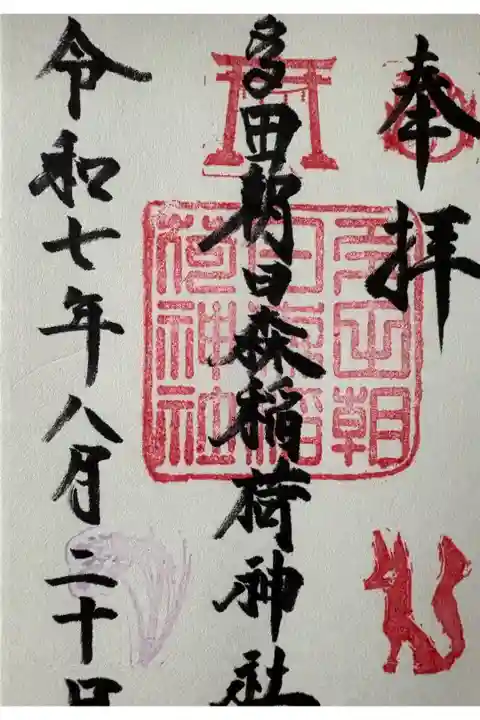 奉拝
多田朝日森稲荷神社
令和七年八月二十日
多田朝
日森稲
荷神社